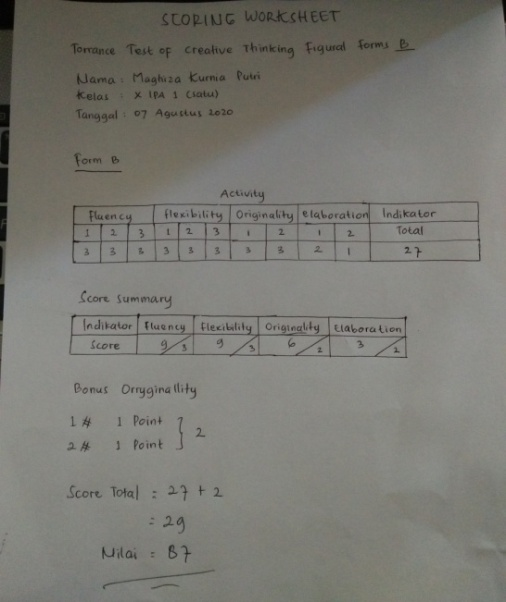 SCORING WORKSHEET
Torrance Test of Creative Thinking Figural Forms B
Nama : Maghiza Kurnia Putri
Kelas : X IPA 1 (satu)
Tanggal : 07 Agustus 2020
Form B
Activity
Fluency Flexibility Originality elaboration Indikator
1 2 3 1 2 3 1 2 1 2 Total
3 3 3 3 3 3 3 3 2 1 27
Score Summary
Indikator Fluency Flexibility Originality Elaboration
Score 9/3 9/3 6/2 3/2
Bonus Orryginallity
1 # 1 Point
2 # 1 Point } 2
Score Total = 27 + 2
= 29
Nilai = B7